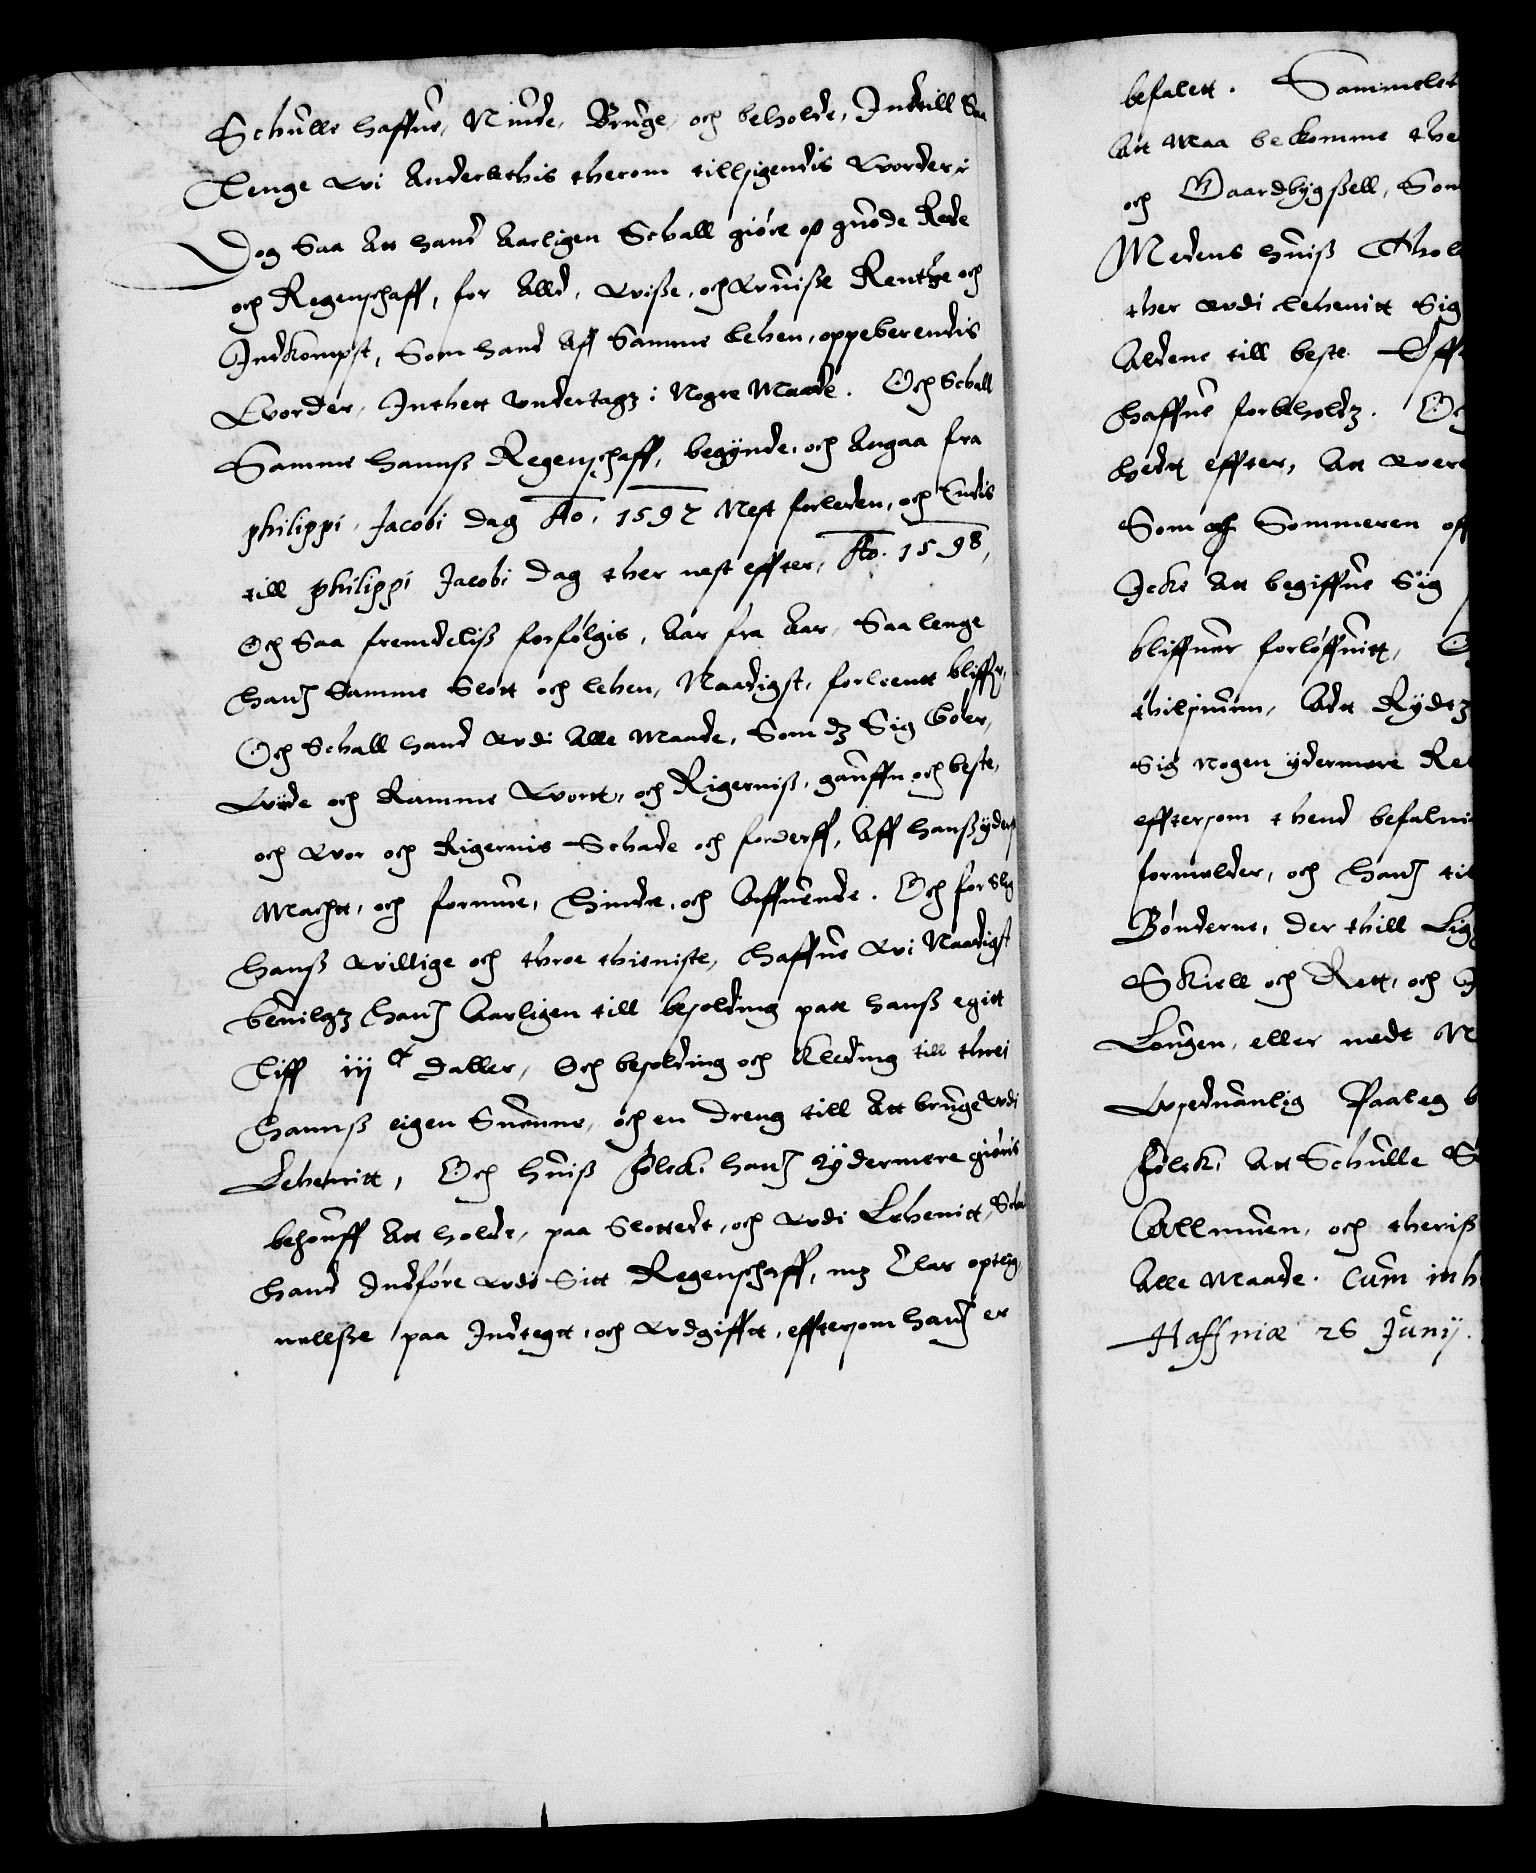 Schulle haffue, Niude, Bruge, och beholde, Indtill Saa
Lenge wi Anderlethis therom tillsigendis worder.
Dog Saa Att hand Aarligen Schall giöre oß guode Rede
och Regenschaff, for Alld, wisse, och wuisse Rentte och
Indkompst, Som hand Aff Samme lehen, oppeberendis
worder, Inthett undertagz i Nogre Maade. Och Schall
Samme hannß Regenschaff, begynde, och Angaa fra
philippi Jacobi dag Ao. 1597 Nest forleden, och Endis
till philippi Jacobi dag ther nest effter, Ao. 1598,
Och Saa fremdeliß forfölgis, Aar fra Aar, Saa lenge
hand Samme Slott och lehen, Naadigst, forleentt bliffr,
Och Schall hand udi Alle Maade, Som dz Sig bör,
wide och Ramme wortt, och Rigernis, gauffn och beste,
och wor och Rigernis Schade och forderff, Aff hanß yderst
Machtt, och formue, hindre, och Affuende. Och for Slig
hanß willige och throe thieniste, haffue wi Naadigst
beuilgz hand Aarligen till besolding paa hanß egitt
Liff iij c daller, Och besolding och Kleding till threi
hannß eigen Suenne, och en dreng till Att bruge udi
Lehenitt, Och huiß folck hand ydermere giöris
behouff Att holde, paa Slottedt, och udi Lehenitt, Schal
hand Indföre udi Sitt Regenschaff, mz klar opteg
nellße paa Indtegt, och udgifft, efftersom hand er
befalett. Sammeled
Att Maa bekomme the
och Gaardbygßell, Som
Medens huiß Thol
ther udi lehenitt Sig
Aldene till beste. Eff
haffue forbeholdz. Og
hedt effter, Att were
Som och Sommeren off
Icke Att begiffue Sig
bliffuer forlöffuitt, O
thilsiunn, Att Rydtz
Sig nogen ydermere Re
efftersom thend befalni
formelder, och hand til
Bönderne, der thill Lig
Skiell och Rett, och I
Longen, eller nedt M
wsedtuanlig Paaleg b
folck, Att Schulle S
Allmuen, och theriß
Alle Maade. Cum inh
Haffniæ 26 Junij.